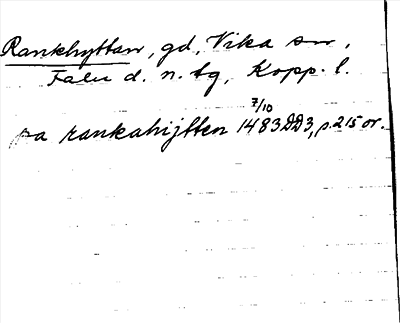 Rankhyttan, gd, Vika sn,
Falu d. n. tg, Kopp. l.
7/10
pa rankahijtten 1483 DD3, p. 215 or.